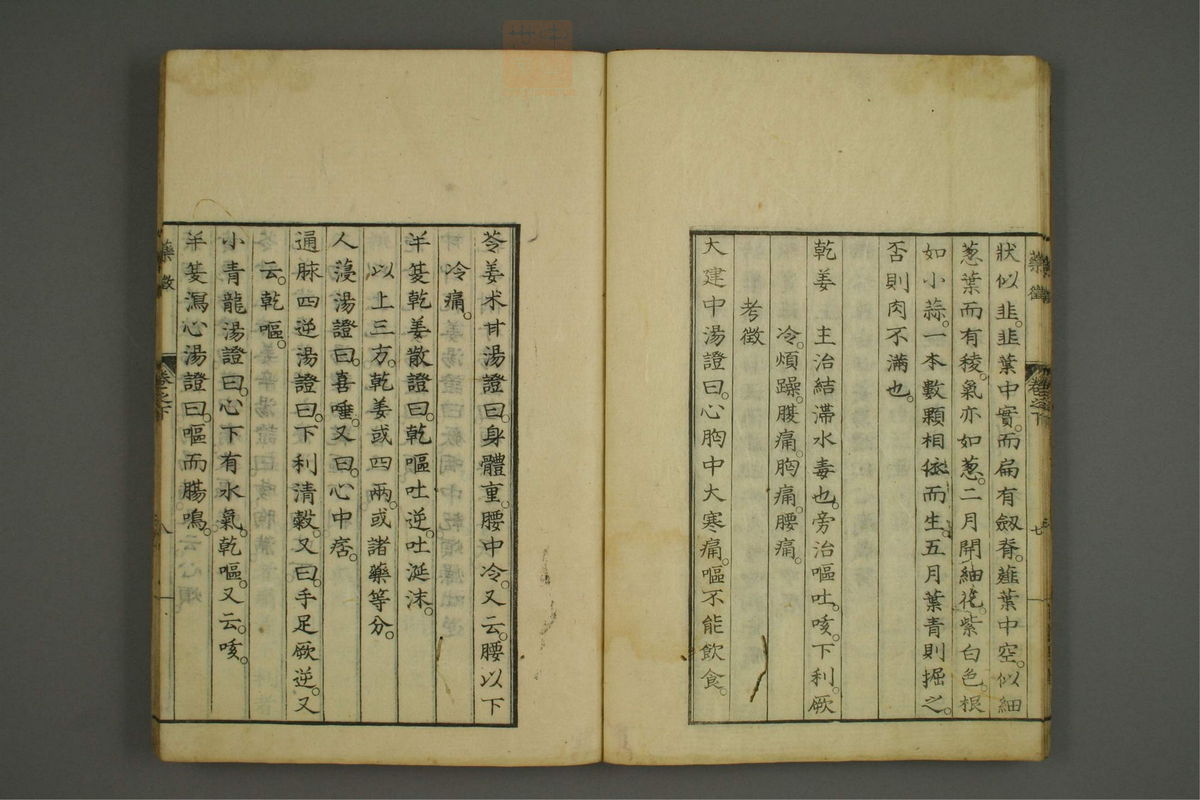 狀似韭。韭葉中實。而扁有劔脊。薤葉中空。似細
葱葉而有稜。氣亦如葱。二月開細花。紫白色。根
如小蒜。一本數顆相依而生。五月葉青則掘之。
否則肉不滿也。
乾姜　主治結滯水毒也。旁治嘔吐。咳。下利。厥
冷。煩躁。腹痛。胸痛。腰痛。
考徵
大建中湯證曰。心胸中大寒痛。嘔不能飲食。
藥徵
卷之下
七
苓姜朮甘湯證曰。身體重。腰中冷。又云。腰以下
冷痛。
半夏乾姜散證曰。乾嘔吐逆。吐涎沫。
以上三方。乾姜或四兩。或諸藥等分。
人蓡湯證曰。喜唾。又曰。心中痞。
通脉四逆湯證曰。下利清穀。又曰。手足厥逆。又
云。乾嘔。
小青龍湯證曰。心下有水氣。乾嘔。又云。咳。
半夏瀉心湯證曰。嘔而腸鳴。
藥徵
卷之下
八